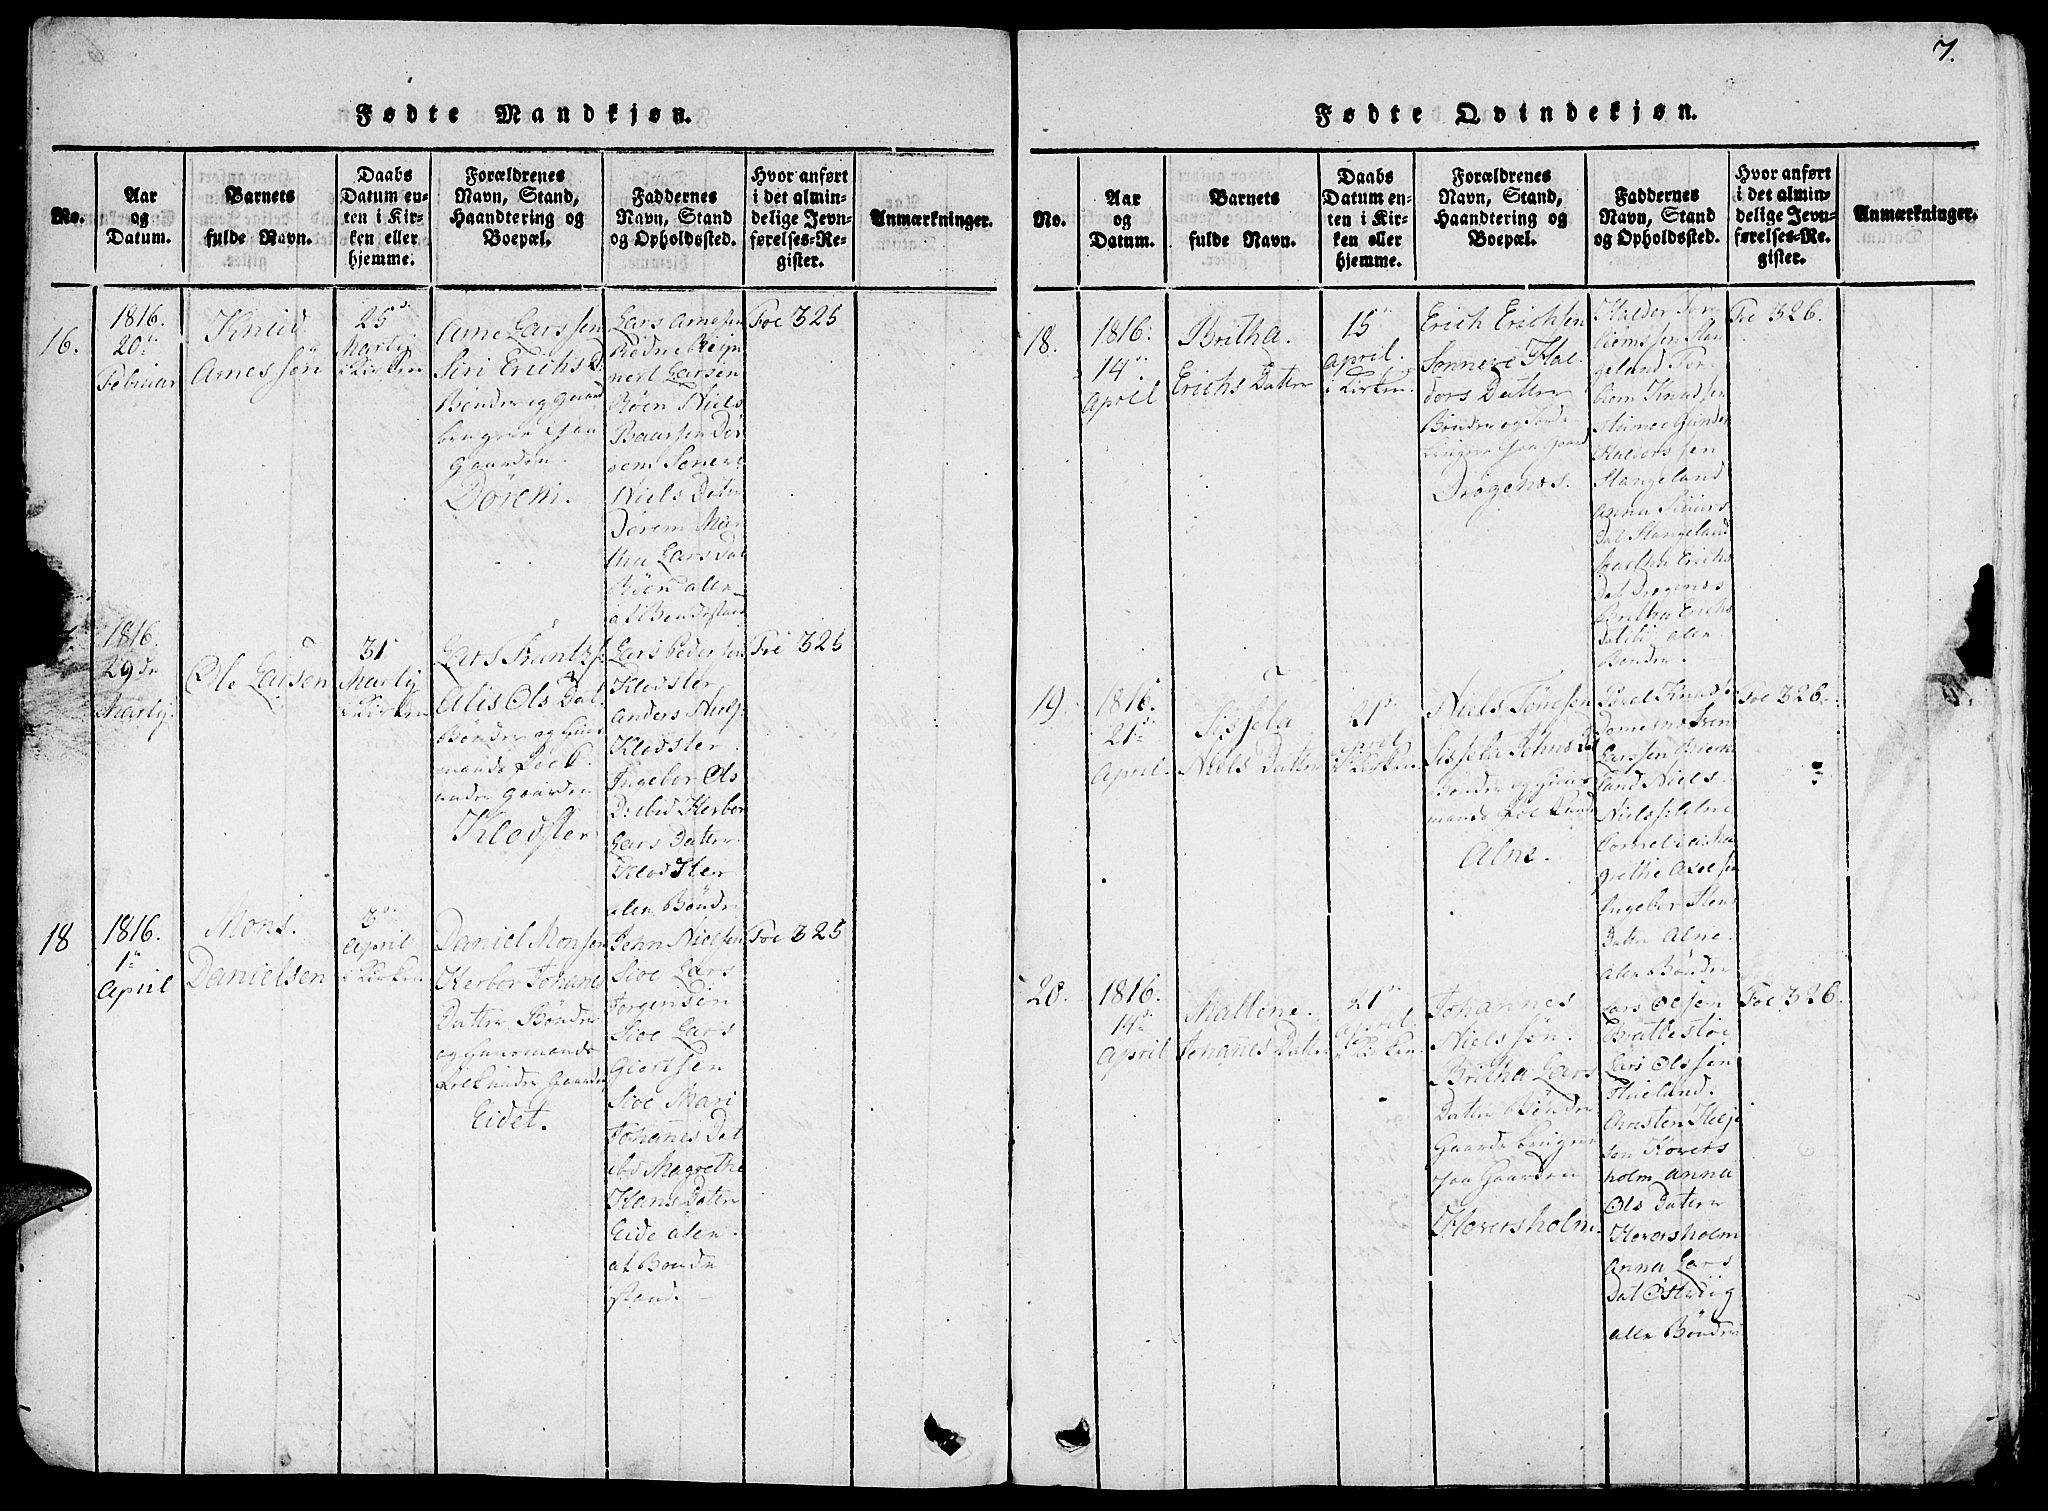 7.
Fødte Mandkjøn.
No.
Aar
og
Datum.
Barnets
fulde Navn.
Daabs
Datum en-
ten i Kir-
ken eller
hjemme.
Forældrenes
Navn, Stand,
Haandtering og
Boepæl.
Faddernes
Navn, Stand
og Opholdssted.
Hvor anført
i det almin-
delige Jevn-
førelses-Re-
gister.
Anmærkninger.
16.
1816.
20de
Februar
Knud
Arnessøn
25de
Martij
i Kirken
Arne Larssen
Siri Erichs D.
Bønder og Gaard
bruger paa
Gaarden
Dörem.
Lars Arnesen
Rødne
Larsen
Böen Niels
Baarsen Dör
em
Niels Datter
Dörem Mar
tha Lars Dat
Böen alle
af Bondestand
Foe 325
1816.
29de
Martij
Ole Larsen
31
Martij
i Kirken
Lars
Alis Ols Dat.
Bönder og Huus
mands Folk
under Gaarden
Klodster
Lars Pedersen
Klodster
Anders Niels
Klodster
Ingebor Ols
D: ibid Herbor
Lars Datter
Klodster
alle Bönder
Foe 325
18
1816.
1de
April
Mons.
Danielsen
3de
April
i Kirken
Daniel Monsen
Herbor Johans
Datter Bönder
og Huusmands
Folk under Gaarden
Eidet.
John Nielsen
Sioe Lars
Jørgensen
Sioe Lars
Giertsen
Sioe Mari
Johannes Dat
ibd Magrethe
Hans Datter
Eide alle
af Bonde
stand.
Foe 325
Fødte Qvindekjøn.
No.
Aar
og
Datum.
Barnets
fulde Navn.
Daabs
Datum en-
ten i Kir-
ken eller
hjemme.
Forældrenes
Navn, Stand,
Haandtering og
Boepæl.
Faddernes
Navn, Stand
og Opholdssted.
Hvor anført
i det almin-
delige Jevn-
førelses-Re-
gister.
Anmærkninger.
18.
1816.
14de
April
Britha.
Erichs Datter
15de
April.
i Kirken.
Erich Erichsen
Sonneve Hal
dors Datter
Bønder og
bruger paa Gaard
Drögenes.
Halder Tor
biornssen Stan
geland Tor
biorn Knudsen
Gunder
Halderssen
Stangeland
Anna Siurs
Dat Stangeland
Erichs
Dat Drögenes
Britha Erichs
Dat ibi alle
Bønder.
Foe 326.
19
1816.
21de
April.
Sissela
Niels Datter
21de
April
i Kirken.
Niels Tönesen
Sissela Johns Dat
Bønder og Huus
mands Folk
Alne.
Poel Knudss.
Iven
Larssen
land Niels
Nielss: Alne
Cornelia Ma
grethe Axelsen
Ingebor Stens
Datter Alne
alle Bönder
Foe 326.
20.
1816.
14de
April
Mallene.
Johannes Datter
21de
April.
i Kirken
Johannes
Nielssön.
Britha Lars
Datter Bönder
Gaards bruger
paa Gaarden
Hoversholm.
Lars Olsen
Brattestöe
Lars Olssen
Hueland.
Christen Helje
sen Hovers
holm Anna
Ols Datter
Hoversholm
Anna Lars
Dat Östviig
alle Bönder
Foe 326.